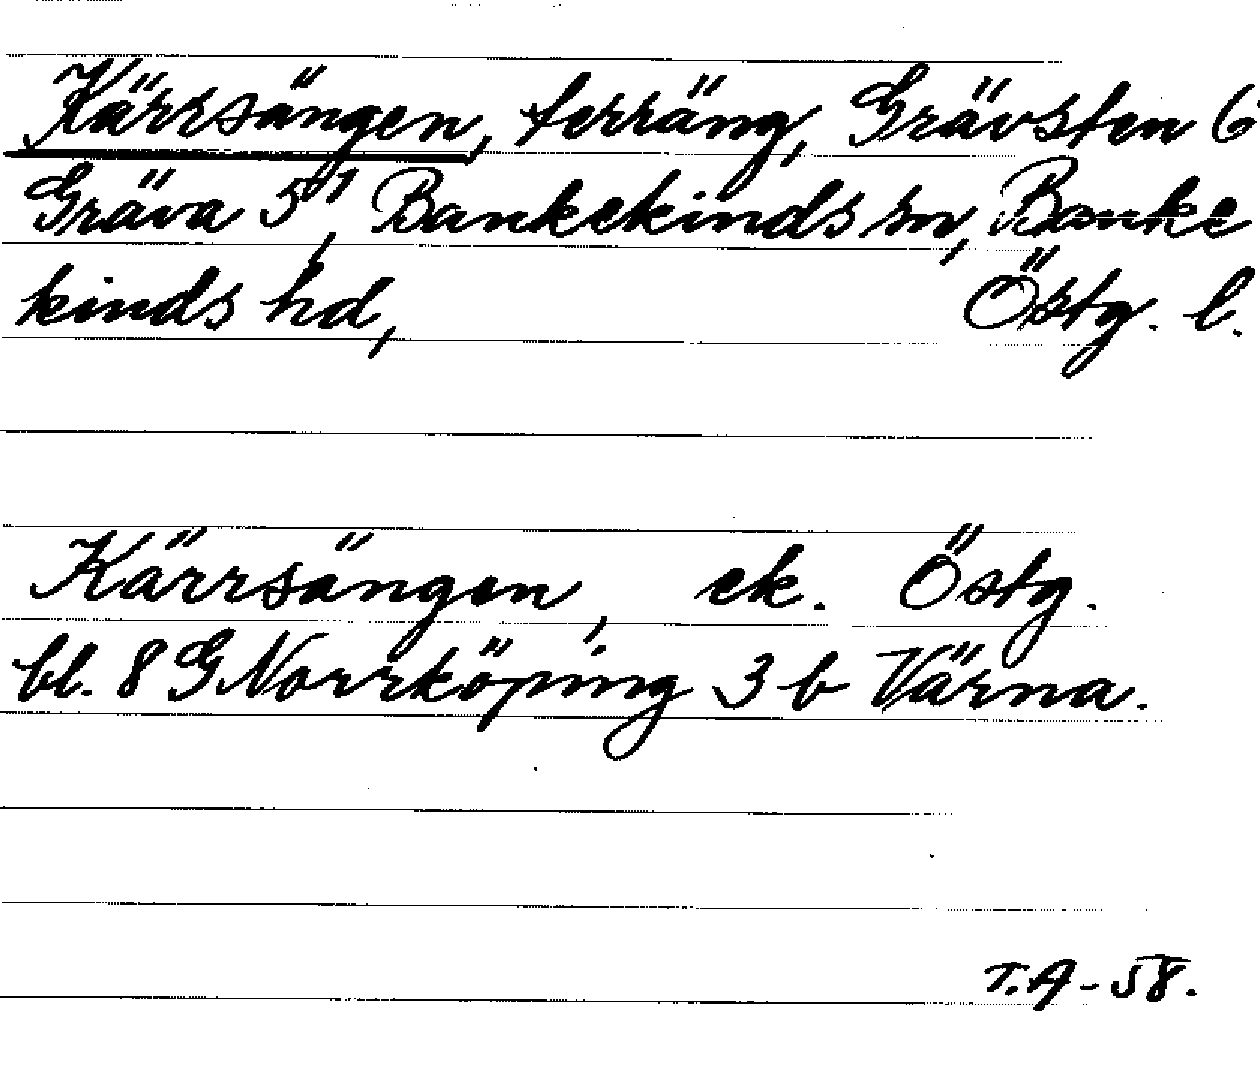 Kärrsängen, terräng, Grävsten 6
Gräva 5¹, Bankekinds sn, Banke
kinds hd, Östg. l.
Kärrsängen, ek. Östg.
bl. 8 G Norrköping 3 b Värna.
T.A-58.